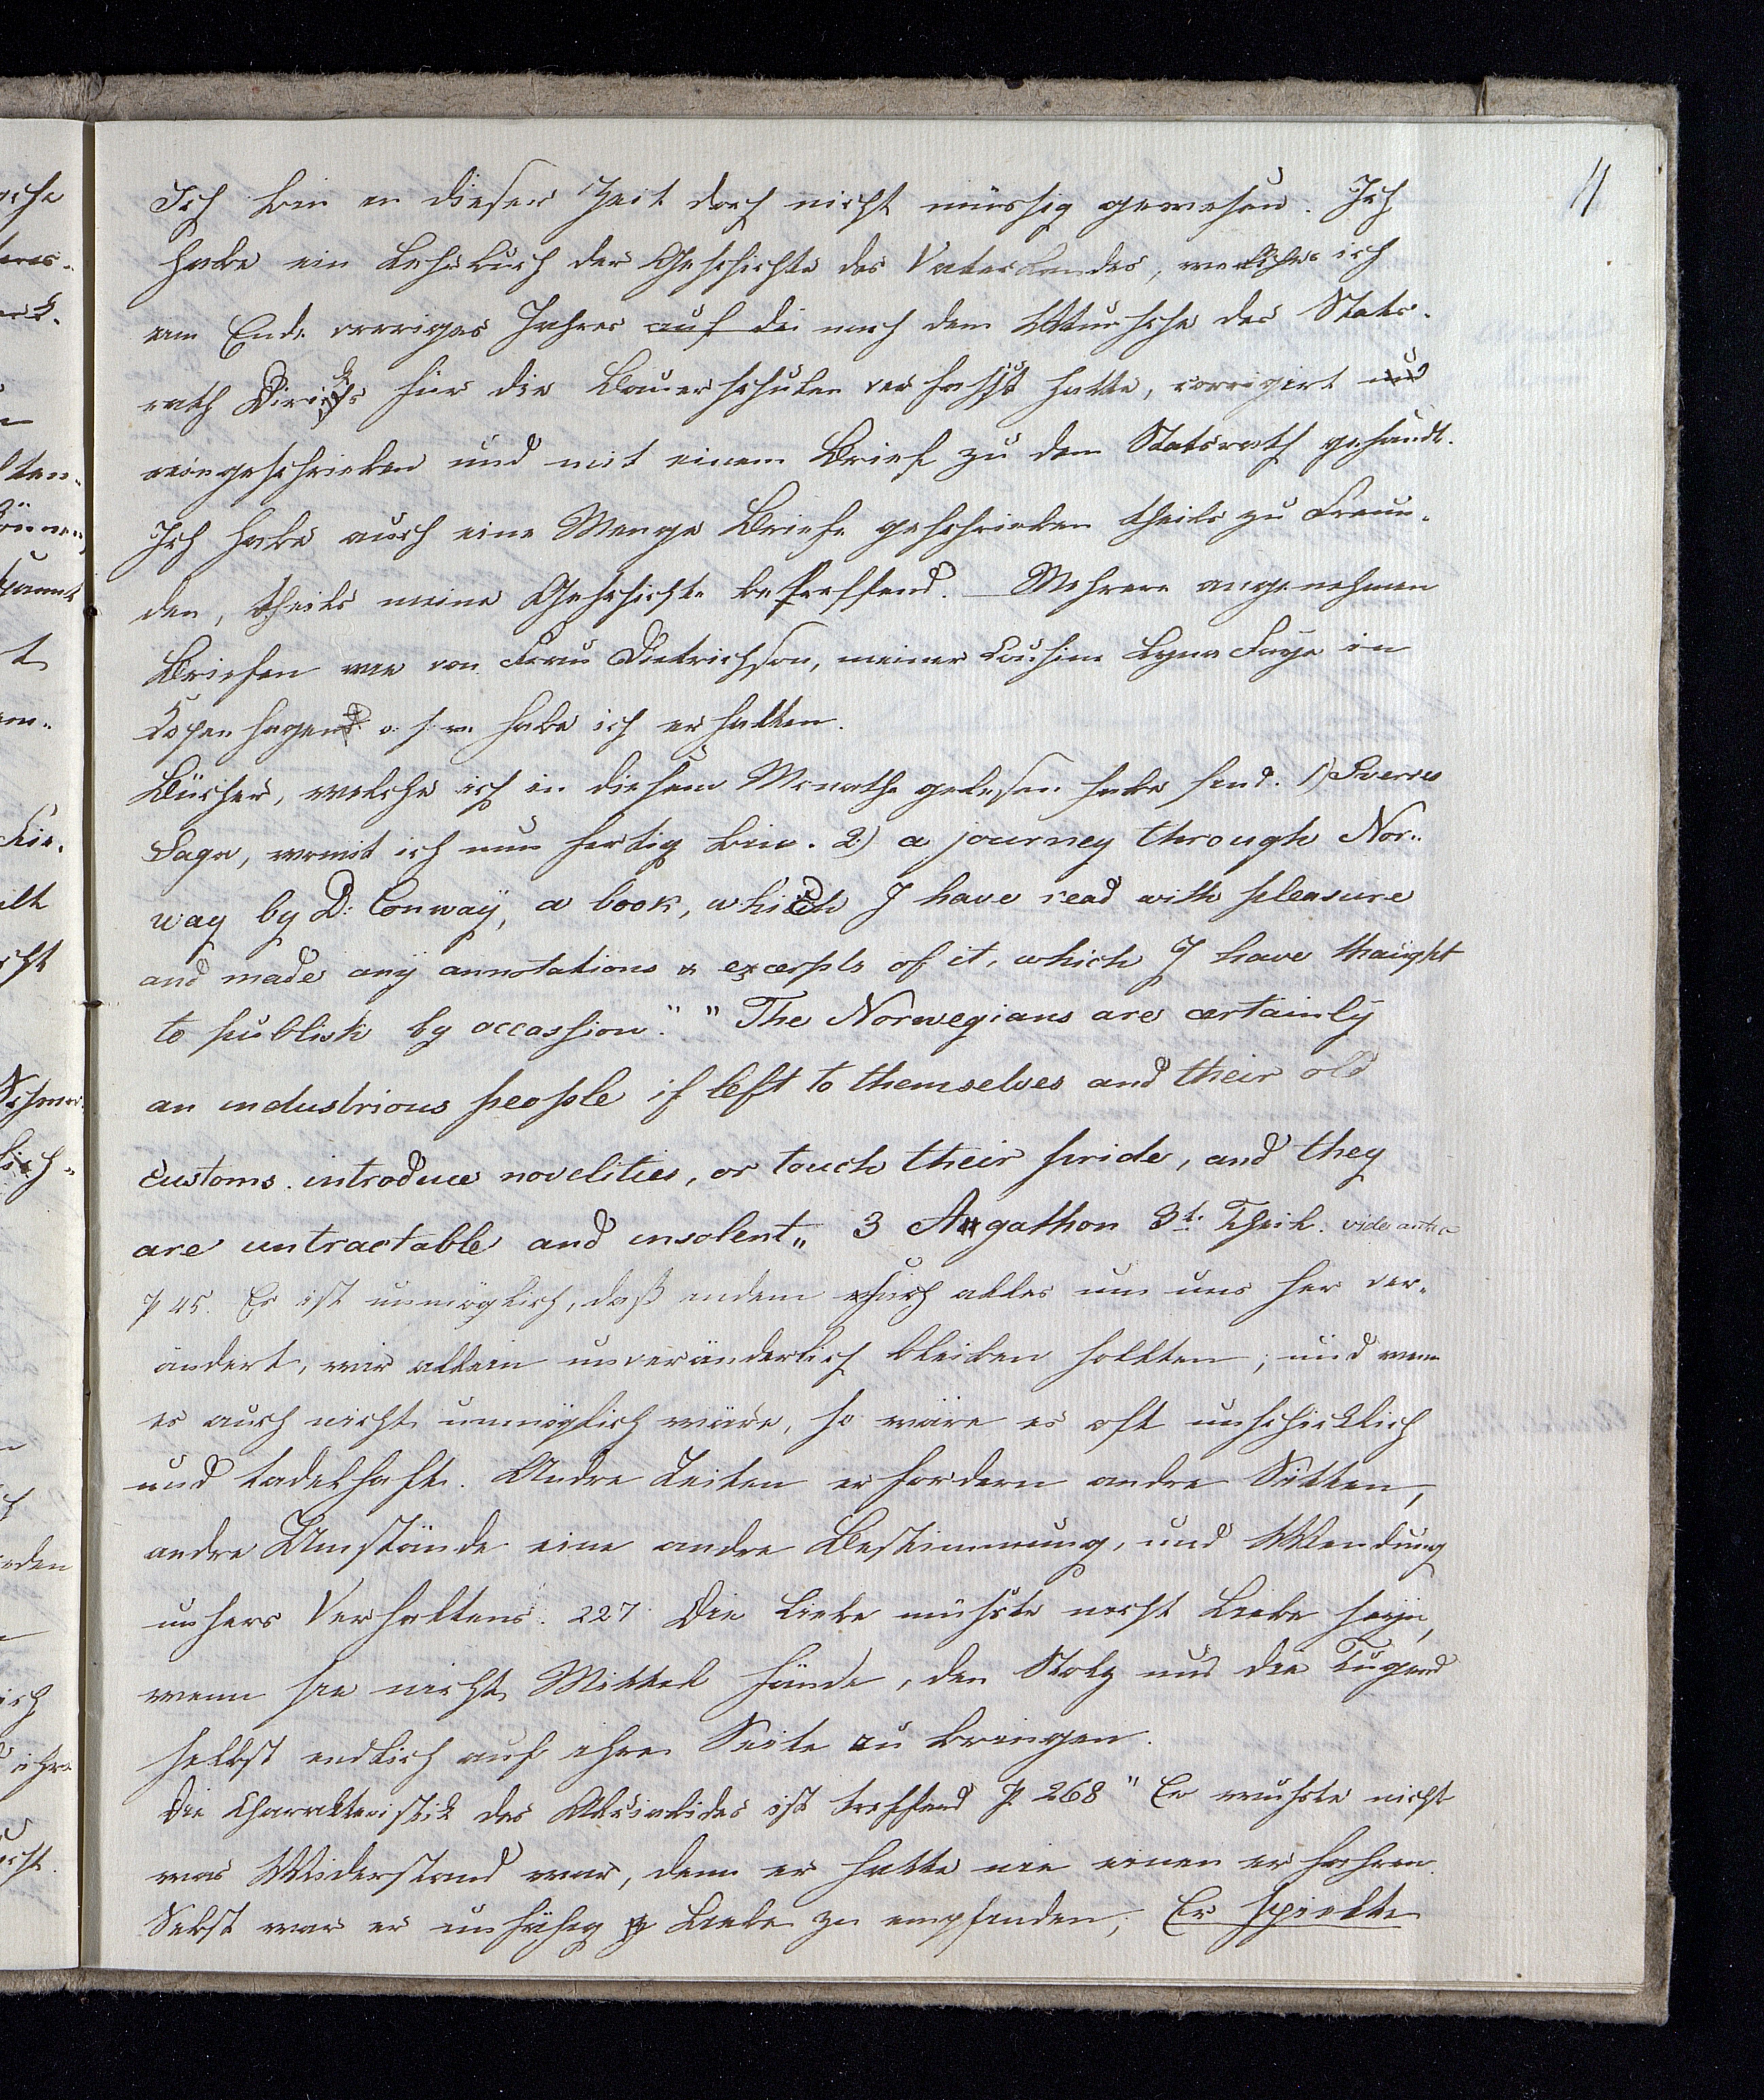 11
Ich bin in dieser Zeit doch nicht müssig gewesen. Ich
habe ein Lehrbuch der Geschichte des Vaterlandes, welches ich
am Ende vorriges Jahres auf die nach dem Wunsche des Stats-
rath Diriks für die Bauerschulen verfasst hatte, corrigirt und
reingeschrieben und mit einem Brief zu dem Statsrath gesandt.
Ich habe auch eine Menge Briefe geschrieben theils zu Freun-
den, theils meine Geschichte betreffend. Mehrere angenehmen
Briefen wie von Frau Dietrichson, meiner Cousine Lyna Faye in
Kopenhagen u. s. w. habe ich erhalten.
Bücher, welche ich in diesem Monathe gelesen habe sind. 1) Sverres
Saga, womit ich nun fertig bin. 2) a journey through Nor-
way by D: Conway, a book, which I have read with pleasure
and made any annotations & excerpts of it, which I have thaught
to publish by occassion." "The Norwegians are certainly
an industrious people if left to themselves and their old
customs. introduce novelities, or touch their pride, and they
are untractable and insolent" 3 Agathon 3t. Theil. vide antea
p 45. Es ist unmöglich, daß indem sich alles um uns her ver-
ändert, wir allein unveränderlich bleiben sollten; und wenn
es auch nicht unmöglich wäre, so wäre es oft unschicklich
und tadelhaft. Andre Zeiten erfordern andre Sitten,
andre Umstände eine andre Bestimmung, und Wendung
unsers Verhaltens. 227. Die Liebe müsste nicht Liebe seyn,
wenn sie nicht Mittel fände, den Stolz und die Tugend
selbst endlich auf ihre Seite zu bringen.
Die Charakteristik des Alcibiades ist treffend p. 268 " Er wusste nicht
was Widerstand war, denn er hatte nie einen erfahren.
Selbst war er unfähig Liebe zu empfinden; Er spielte